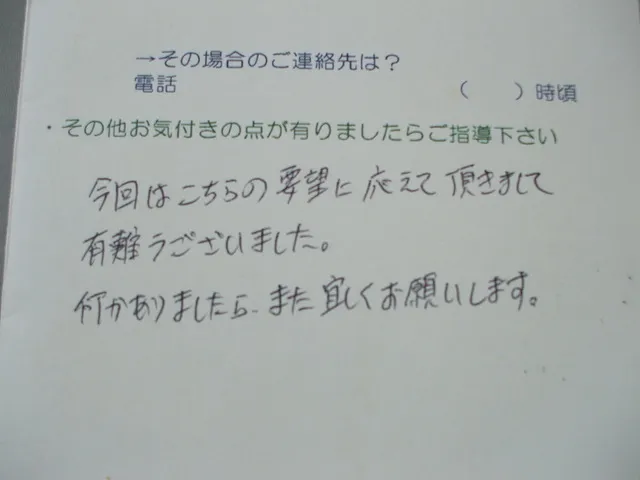 →その場合のご連絡先は？
電話 （ ）時頃
・その他お気付きの点が有りましたらご指導下さい
今回はこちらの要望に応えて頂きまして
有難うございました。
何かありましたら、また宜しくお願いします。